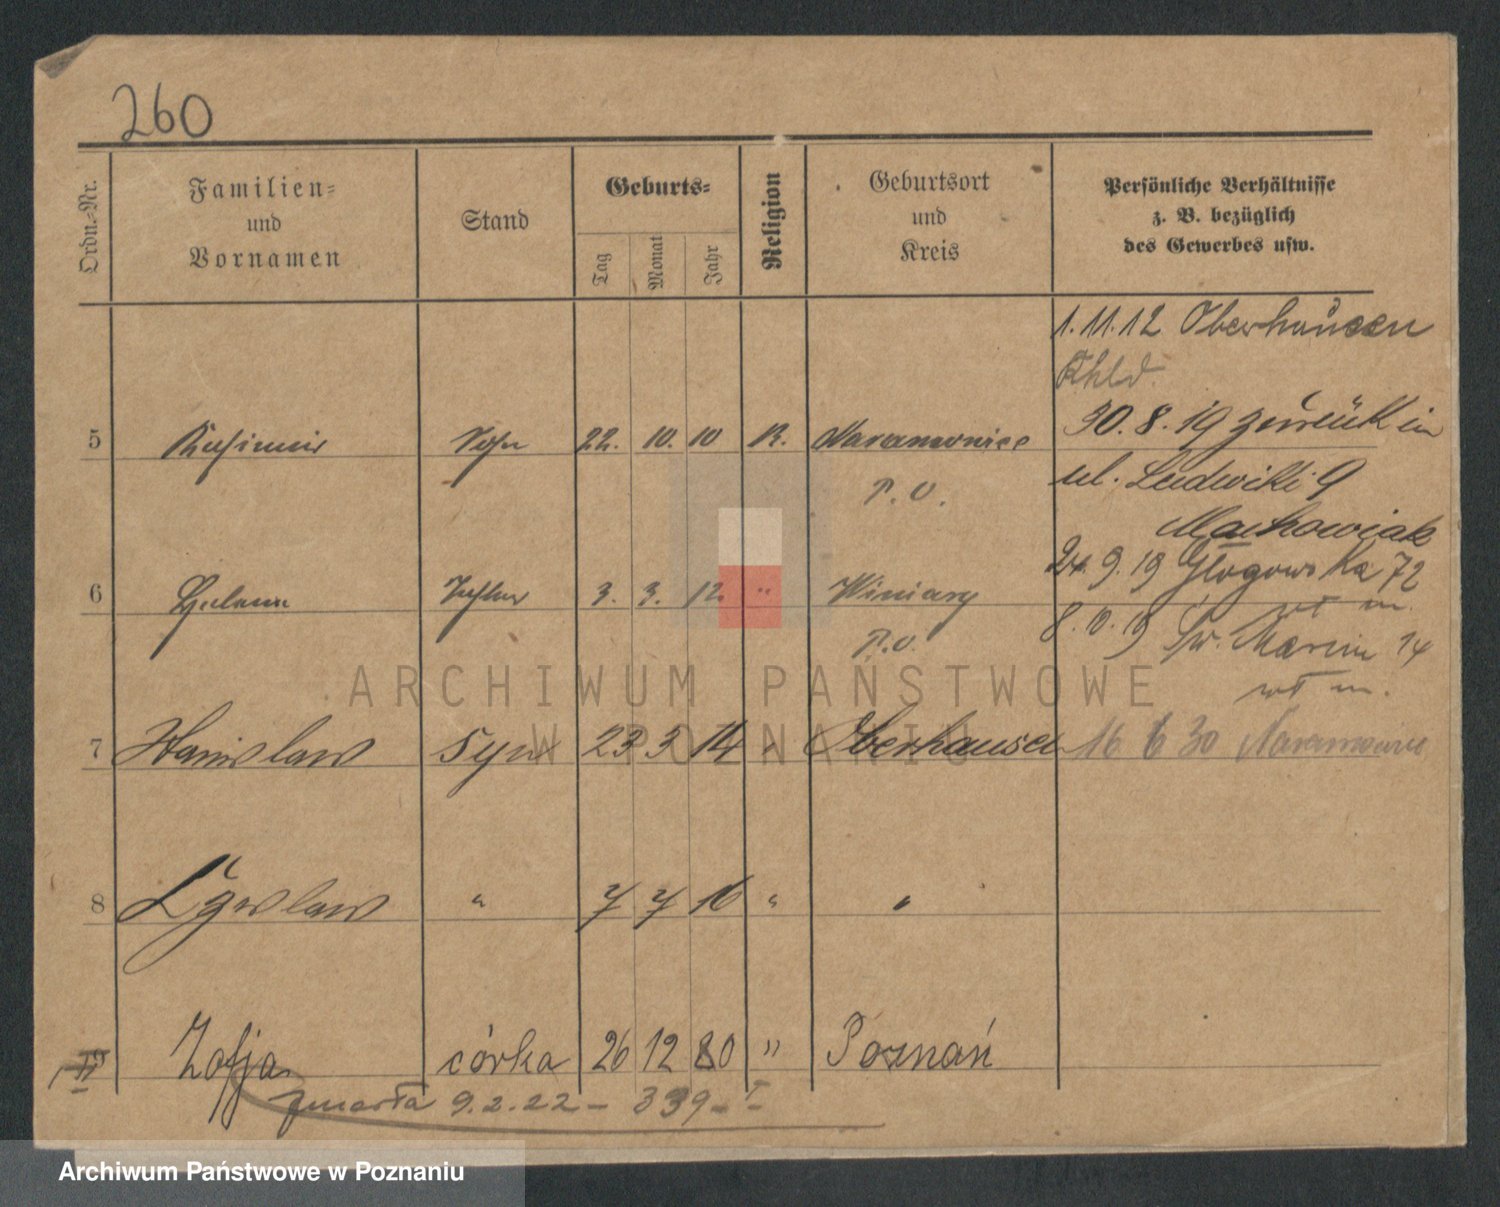 260
Ordn.-Nr.
Familien-
und
Vornamen
Stand
Geburts-
Tag
Monat
Jahr
Religion
Geburtsort
und
Kreis
Persönliche Verhältnisse
z. B. bezüglich
des Gewerbes usw.
1.11.12 Oberhausen
Rhld.
30.8.19 zurück in
5 Kasimir Sohn 22. 10. 10 K. Naramowice
P. O.
ul. Ludwiki 9
Maćkowiak
24.9.19 Głogowska 72
wł m.
6 Helene Tochter 3. 3. 12. " Winiary
P. O.
8.10.19 Św. Marcin 14
wł m.
7 Stanislaw syn 23 3 14 " Oberhausen 16 6 30 Naramowice
8 " 7 7 16 " "
9 Zofja córka 26 12 80 " Poznań
zmarła 9.2.22 – 339 – I –
ARCHIWUM PAŃSTWOWE
W POZNANIU
Archiwum Państwowe w Poznaniu